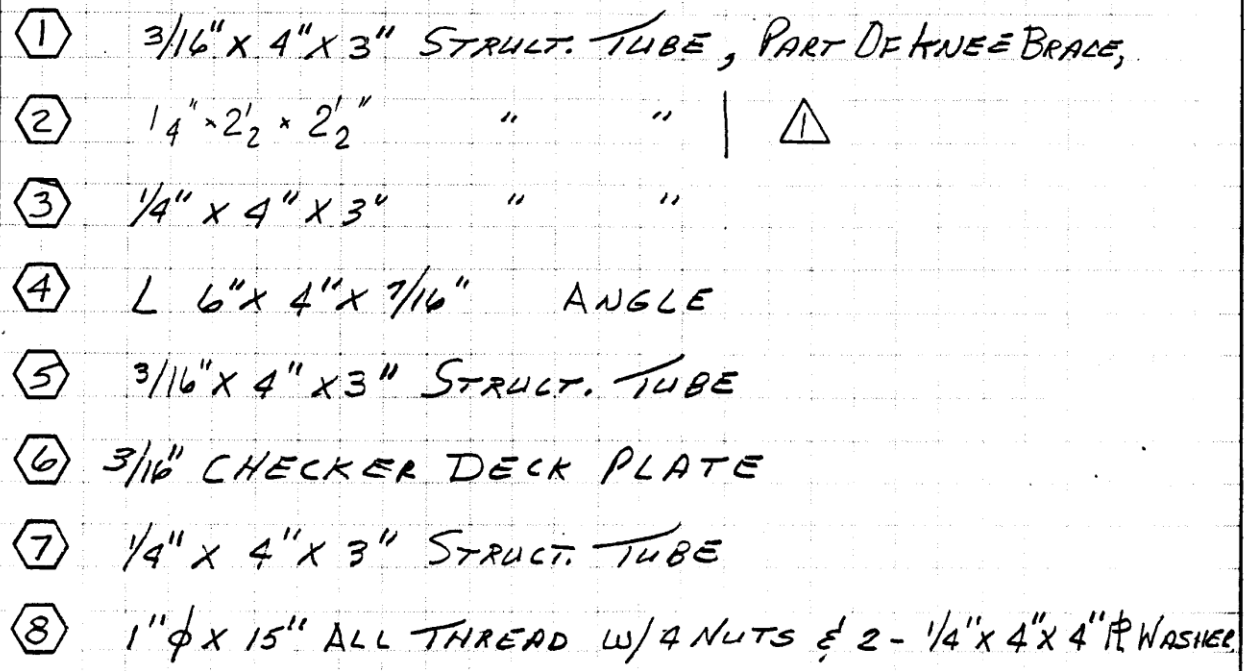 1 3/16" X 4" X 3" STRUCT. TUBE, PART OF KNEE BRACE,
2 1/4" × 2 1/2 × 2 1/2" " " | 1
3 1/4" X 4" X 3" " "
4 L 6" X 4" X 7/16" ANGLE
5 3/16" X 4" X 3" STRUCT. TUBE
6 3/16" CHECKER DECK PLATE
7 1/4" X 4" X 3" STRUCT. TUBE
8 1" φ X 15" ALL THREAD W/ 4 NUTS & 2 - 1/4" X 4" X 4" PL WASHER